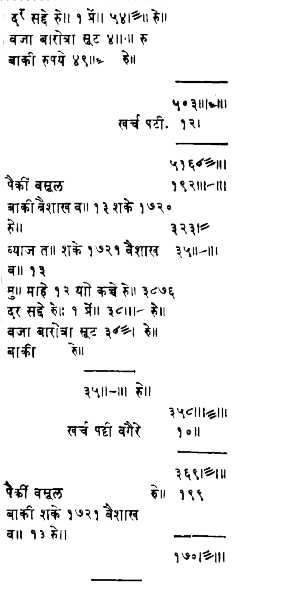 दर सद्दे रु॥ १ प्रें॥ ५४।≡॥ रु॥
वजा बारोत्रा सूट ४॥॥ रु
बाकी रुपये ४९॥॥ रु॥
५०३॥।॥
खर्च पटी. १२।
५१६≡॥।
पैकीं वसूल १९२॥।-॥।
बाकी वैशाख व॥ १३ शके १७२०
रु॥ ३२३।=
व्याज त॥ शके १७२१ वैशाख ३५॥-॥।
व॥ १३
मु॥ माहे १२ यो कच्चे रु॥ ३८७६
दर सद्दे रु॥ १ प्रें॥ ३८॥।- रु॥
वजा बारोत्रा सूट ३≡। रु॥
बाकी रु॥
३५॥-॥। रु॥
३५८॥।≡॥।
खर्च पट्टी वगैरे १०॥
३६९।≡।॥
पैकीं वसूल रु॥ १९९
बाकी शके १७२१ वैशाख
व॥ १३ रु॥
१७०।≡॥।